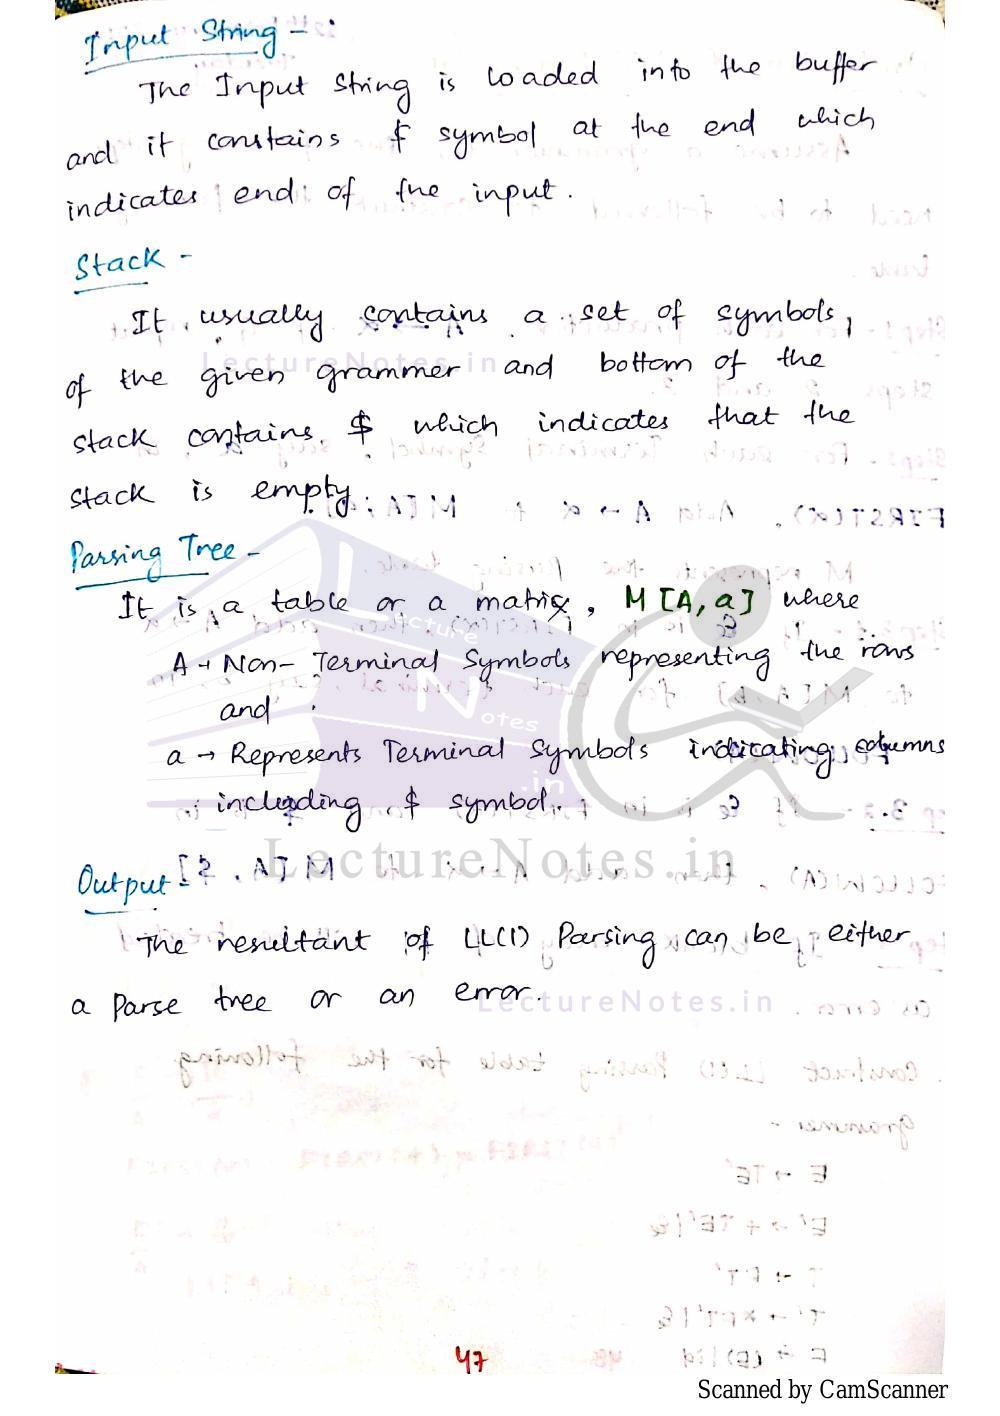 Input String -
The Input String is loaded into the buffer
and it constains $ symbol at the end which
indicates end of the input.
Stack -
It usually contains a set of symbols,
of the given grammer and bottom of the
stack contains $ which indicates that the
stack is empty.
Parsing Tree -
It is a table or a matrix, M [A, a] where
A → Non-Terminal Symbols representing the rows
and
a → Represents Terminal Symbols indicating columns
including $ symbol.
Output
The resultant of LL(1) Parsing can be either
a Parse tree or an error.
47
LectureNotes.in
Lecture
Notes
.in
LectureNotes.in
LectureNotes.in
Scanned by CamScanner